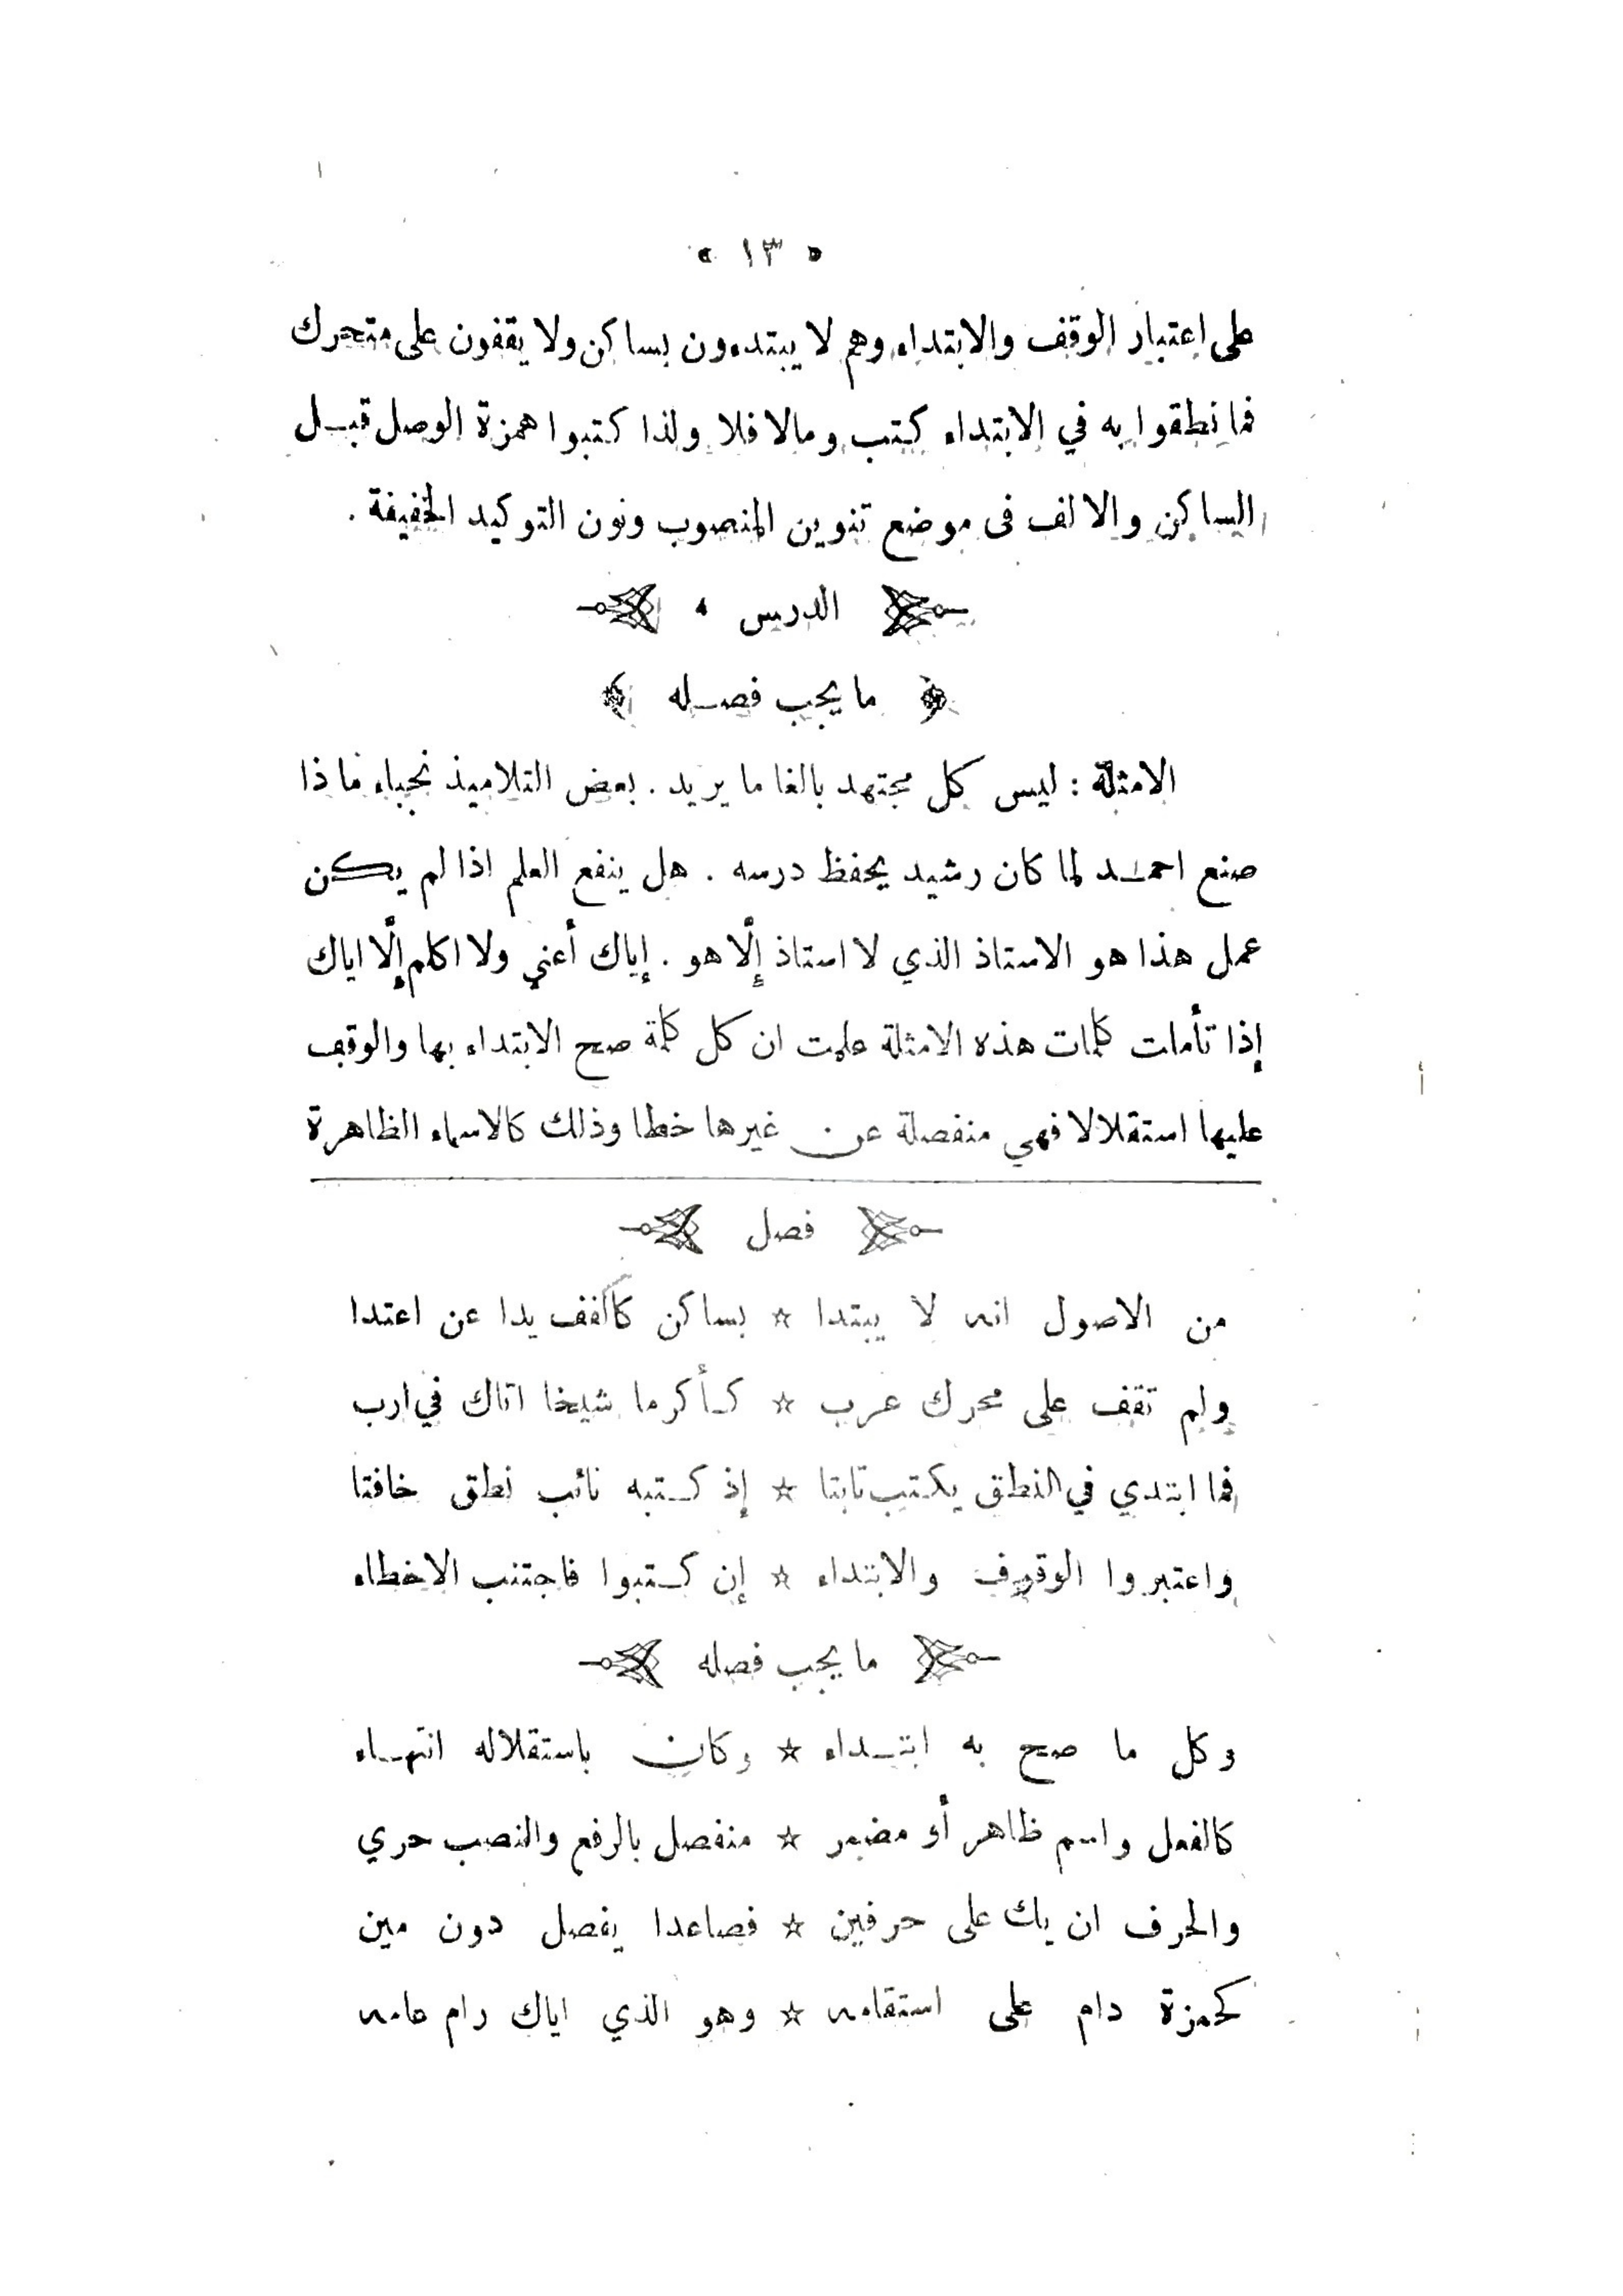 « ١٣ »
على اعتبار الوقف والابتداء وهم لا يبتدءون بساكن ولا يقفون على متحرك
فما نطقوا به في الابتداء كتب ومالا فلا ولذا كتبوا همزة الوصل قبل
الساكن والالف فى موضع تنوين المنصوب ونون التوكيد الخفيفة .
الدرس
ما يجب فصله
الامثلة : ليس كل مجتهد بالغا ما يريد . بعض التلاميذ نجباء ماذا
صنع احمد لما كان رشيد يحفظ درسه . هل ينفع العلم اذا لم يكن
عمل هذا هو الاستاذ الذي لا استاذ إلّا هو . إياك أعني ولا اكلم إلّا اياك
إذا تأملت كلمات هذه الامثلة علمت ان كل كلمة صح الابتداء بها والوقف
عليها استقلالا فهي منفصلة عن غيرها خطا وذلك كالاسماء الظاهرة
فصل
من الاصول انه لا يبتدا ☆ بساكن كاكفف يدا عن اعتدا
ولم تقف على محرك عرب ☆ كأكرما شيخا اتاك في ارب
فما ابتدي في النطق يكتب ثابتا ☆ إذ كتبه نائب نطق خافتا
واعتبروا الوقوف والابتداء ☆ إن كتبوا فاجتنب الاخطاء
ما يجب فصله
وكل ما صح به ابتداء ☆ وكان باستقلاله انتهاء
كالفعل واسم ظاهر أو مضمر ☆ منفصل بالرفع والنصب حري
والحرف ان يك على حرفين ☆ فصاعدا يفصل دون مين
كحمزة دام على استقامه ☆ وهو الذي اياك رام عامه